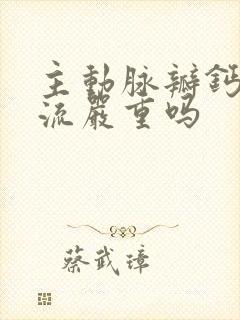 主動脉瓣鈣
流嚴重吗
蔡武璋